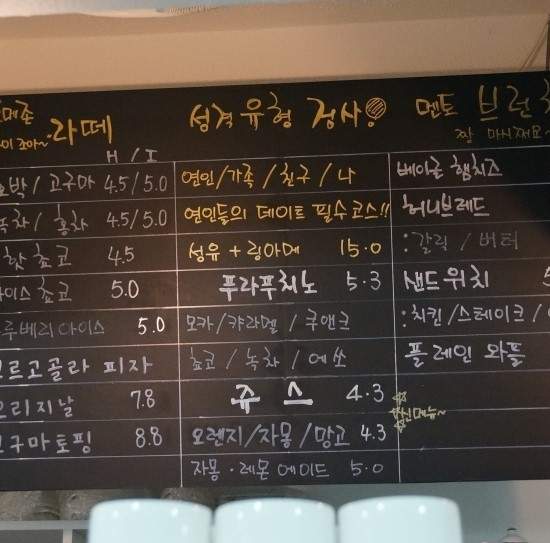 메존
라떼
H / I
호박 / 고구마 4.5/5.0
녹차 / 홍차 4.5/5.0
핫 쵸코 4.5
아이스 쵸코 5.0
루베리 다이스 5.0
고르곤졸라 피자
오리지날 7.8
고구마토핑 8.8
성격유형 검사
연인/가족 /친구 / 나
연인들의 데이트 필수코스!!
성유 + 링아메 15.0
푸라푸치노 5.3
모카/캬라멜 / 쿠앤크
쵸코 / 녹차 / 에쏘
쥬스 4.3
오렌지/자몽 /망고 4.3
자몽 · 레몬 에이드 5.0
멘토 브런치
짱 마시쩌요
베이글 햄치즈
허니브레드
: 갈릭 / 버터
샌드위치 5
: 치킨 /스테이크 /
플레인 와플
신메뉴~